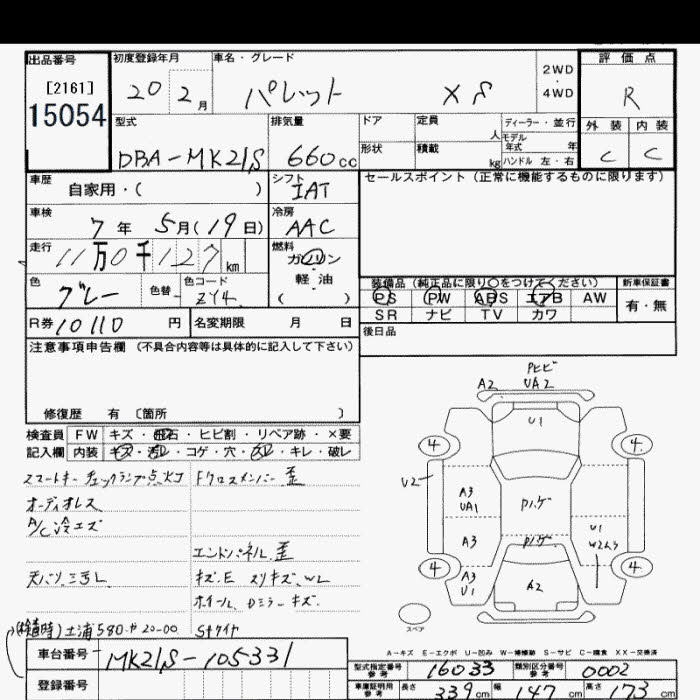 出品番号 初度登録年月 車名・グレード 2WD・4WD 評価点
[2161] 20 2月 パレット XS R
15054
型式 排気量 ドア 定員 人 ディーラー・並行 外装 内装
形状 積載 kg モデル年式 年 ハンドル 左・右
DBA-MK21S 660cc C C
車歴 自家用・( ) シフト IAT セールスポイント(正常に機能するものに限ります)
車検 7年 5月(19日) 冷房 AAC
走行 11万0千127km 燃料 ガソリン
軽油
( )
色 グレー 色替 色コード ZY4 装備品(純正品に限り○をつけてください) 新車保証書
PS PW ABS エアB AW 有・無
SR ナビ TV カワ
R券 10110円 名変期限 月 日 後日品
注意事項申告欄(不具合内容等は具体的に記入して下さい)
修復歴 有〔箇所 〕
検査員 FW キズ・飛石・ヒビ割・リペア跡・×要
記入欄 内装 キズ・汚れ・コゲ・穴・スレ・キレ・破レ
スマートキー チェックランプ点灯 Fクロスメンバー歪
オーディオレス
A/C冷エズ
エンドパネル歪
天バリ
キズ.E スリキズ.WL
ホイール Dミラーキズ
土浦580 か 20-00
車台番号 MK21S-105331
登録番号
Pヒビ
A2 UA2
U1
4 4
U2 A3 UA1 Pハゲ
A3 Pハゲ U1
4 A3 U1 A2 4
スペア
A-キズ E-エクボ U-凹み W-補修跡 S-サビ C-腐食 XX-交換済
型式指定番号 参考 16033 類別区分番号 参考 0002
車庫証明用 参考 長さ 339cm 幅 147cm 高さ 173cm